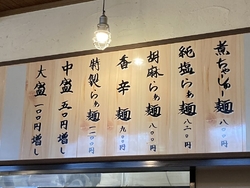 葱ちゃーしゅー麺 八〇〇円
純塩らぁ麺 八二〇円
胡麻らぁ麺 八〇〇円
香辛麺 九〇〇円
特製らぁ麺 一一〇〇円
中盛 五〇円増し
大盛 一〇〇円増し